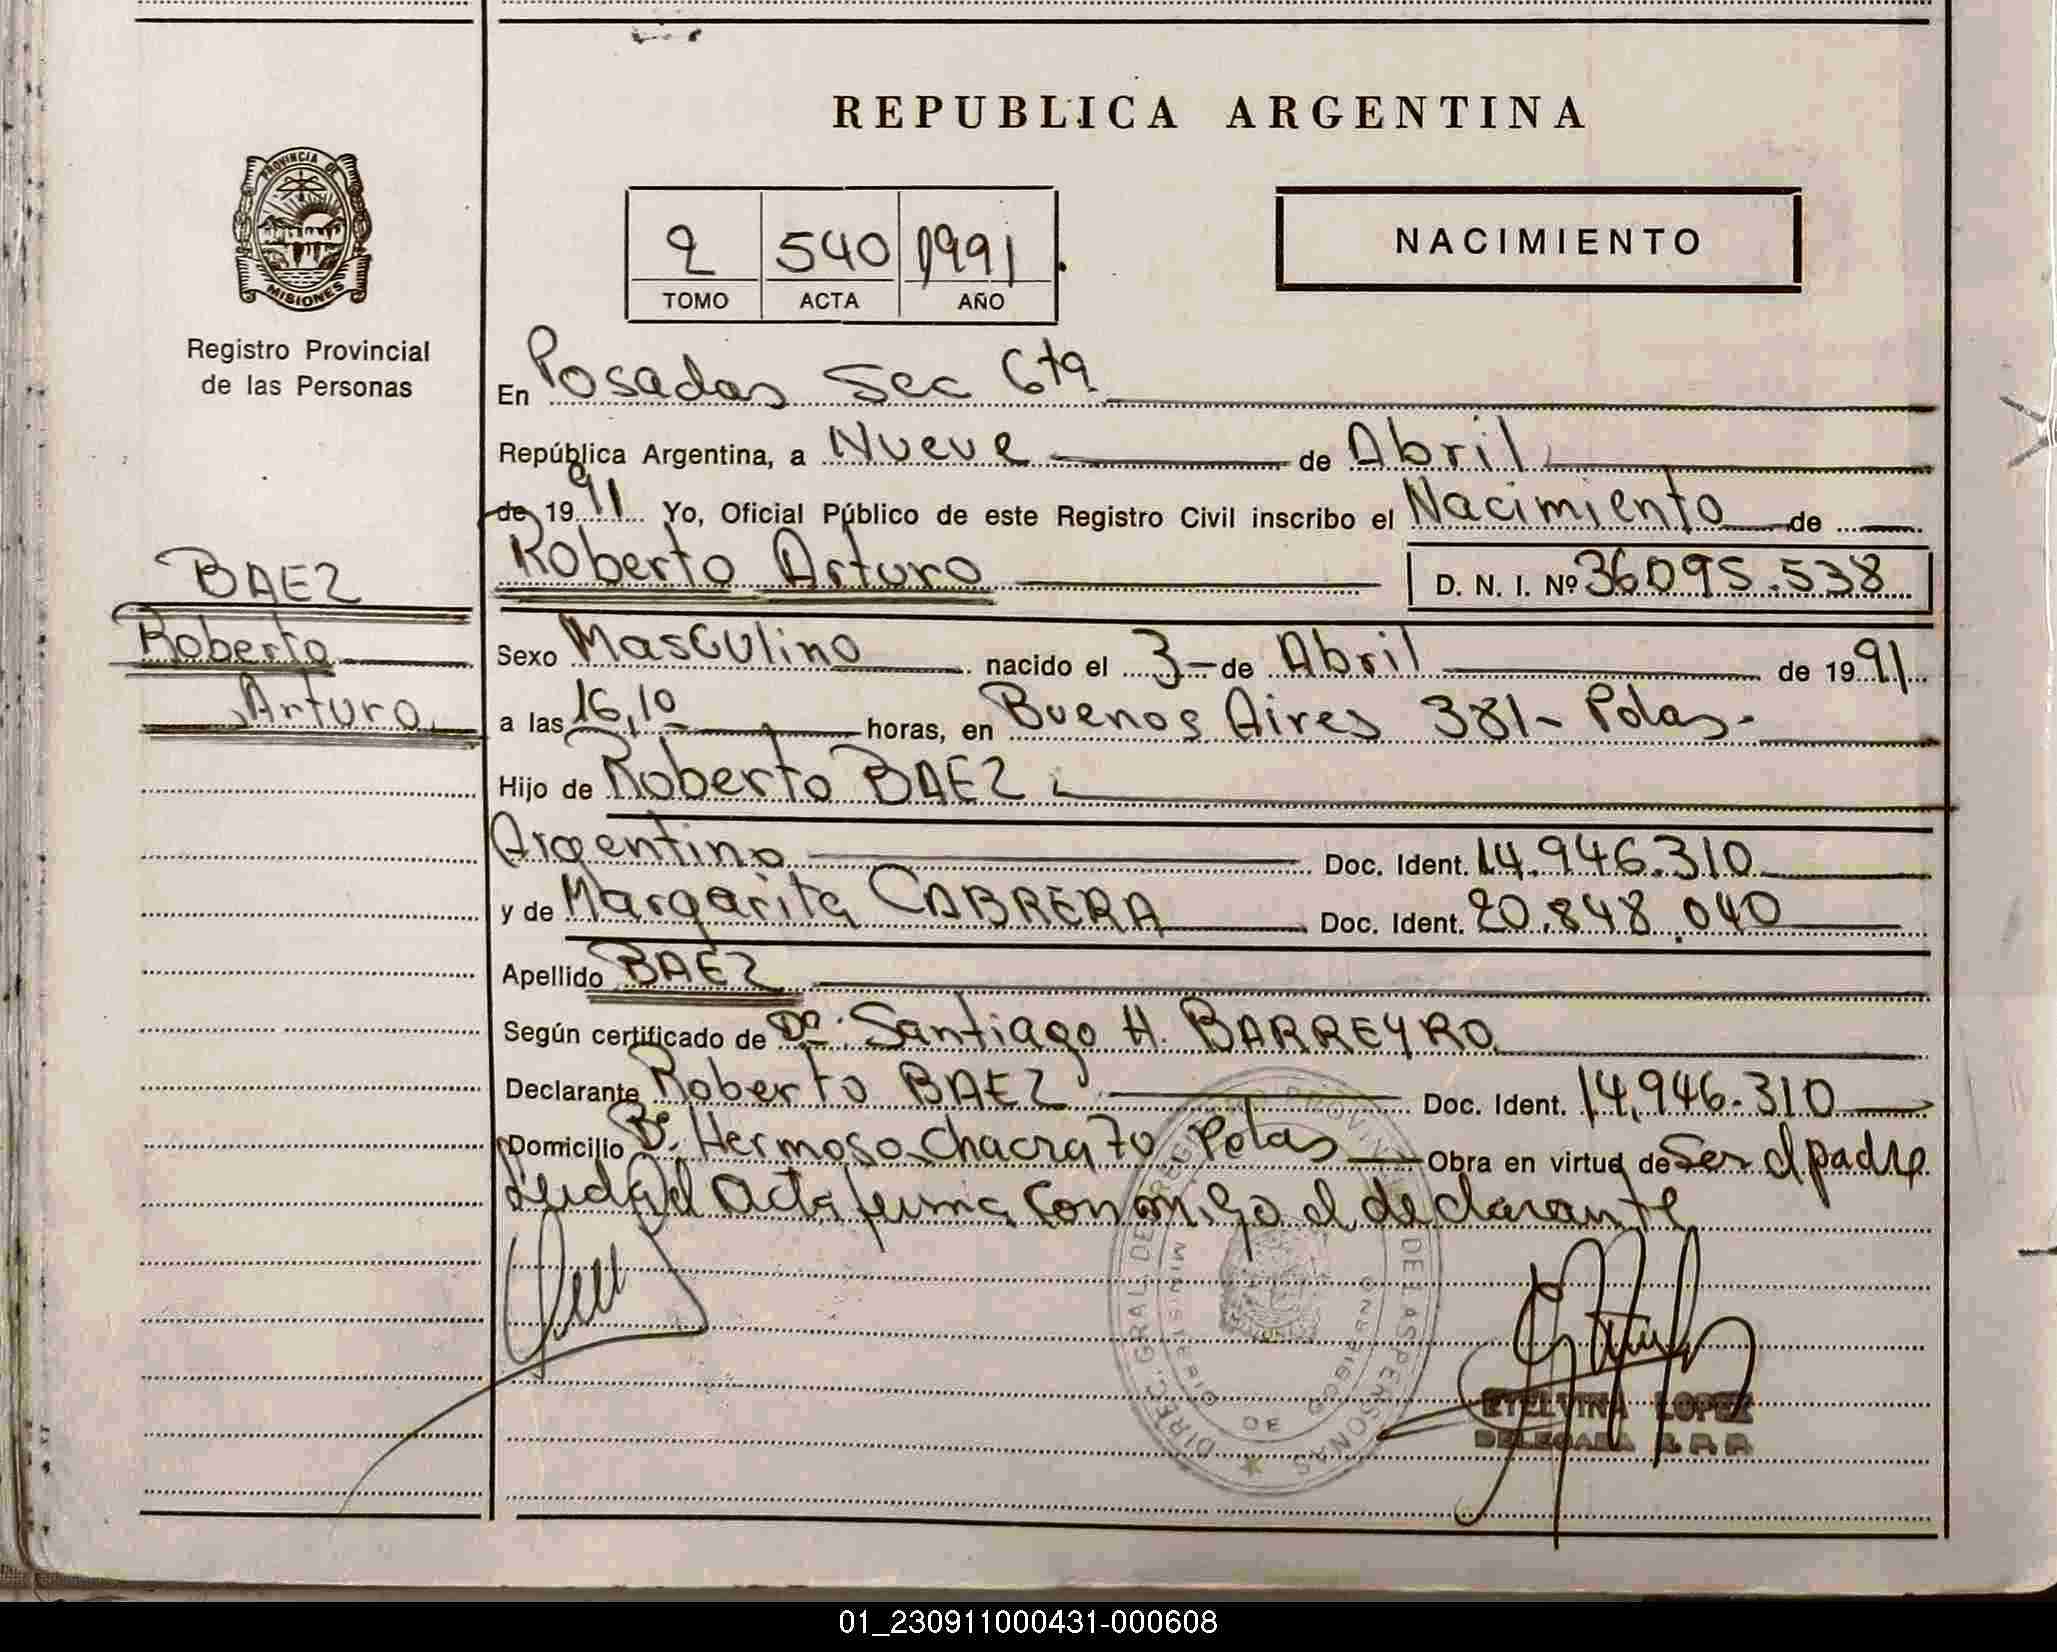 REPUBLICA ARGENTINA
PROVINCIA DE
MISIONES
Registro Provincial
de las Personas
2 540 1991
TOMO ACTA AÑO
NACIMIENTO
En Posadas Sec 6ta
República Argentina, a Nueve de Abril
de 1991 Yo, Oficial Público de este Registro Civil inscribo el Nacimiento de
Roberto Arturo D. N. I. Nº 36095.538
BAEZ
Roberto
Arturo
Sexo Masculino nacido el 3 de Abril de 1991
a las 16,10 horas, en Buenos Aires 381 - Pdas.
Hijo de Roberto BAEZ
Argentino Doc. Ident. 14.946.310
y de Margarita CABRERA Doc. Ident. 20.848.040
Apellido BAEZ
Según certificado de Dr. Santiago H. BARREYRO
Declarante Roberto BAEZ Doc. Ident. 14,946.310
Domicilio Bº. Hermoso Chacra 70 Pdas Obra en virtud de Ser el padre
Leida el Acta firma conmigo el declarante
DIREC. GRAL. DE REGISTRO PROVINCIAL DE LAS PERSONAS
MINISTERIO DE GOBIERNO
ETELVINA LOPEZ
DELEGADA R. P. P.
01_230911000431-000608